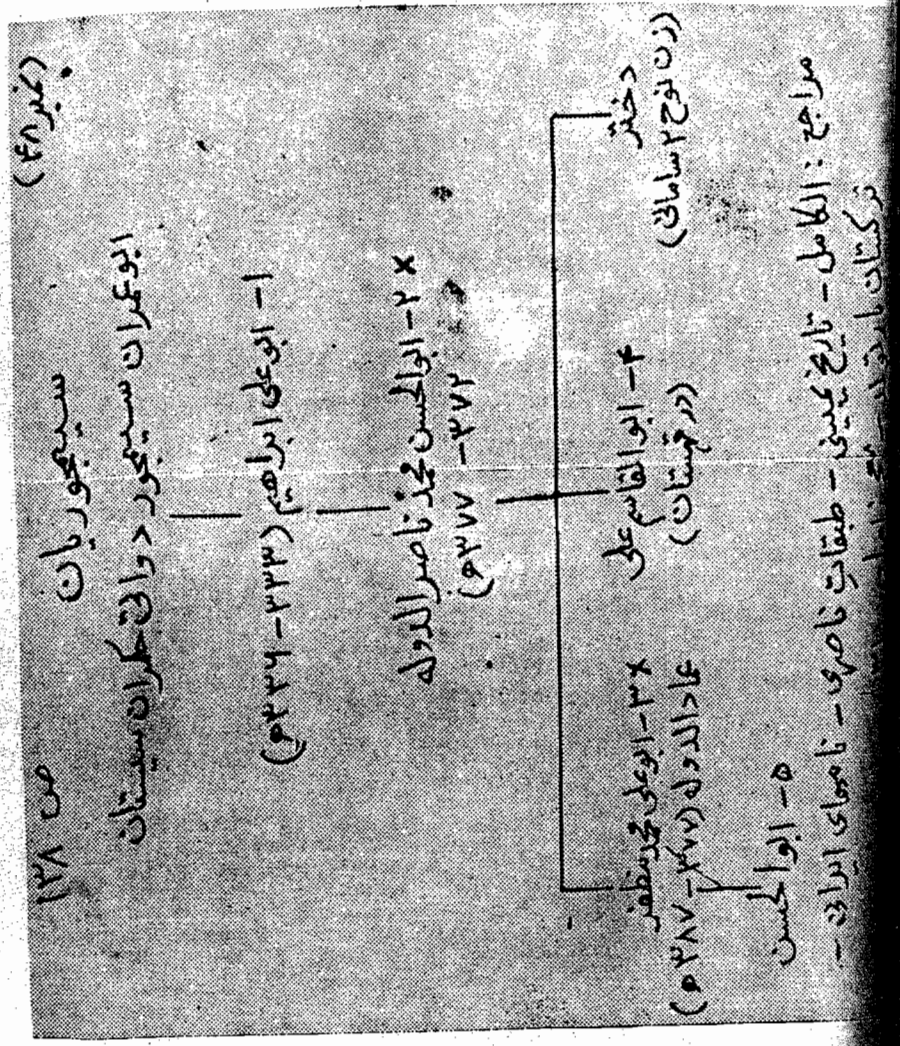 ص ۱۳۸
سیمجوریان
(نمبر ۴۸)
ابو عمران سیمجور دواتی حکمران سیستان
۱- ابو علی ابراهیم (۳۳۳-۳۳۶ھ)
×۲- ابوالحسن محمد ناصر الدوله
(۳۷۷ھ - ۳۷۲
×۳- ابو علی محمد مظفر
عماد الدوله (۳۷۷-۳۸۷ھ)
۴- ابو القاسم علی
(در قهستان)
دختر
(زن نوح ۲ سامانی)
۵- ابوالحسن
مراجع : الکامل - تاریخ یمینی - طبقات ناصری - نامهای ایرانی -
ترکستان